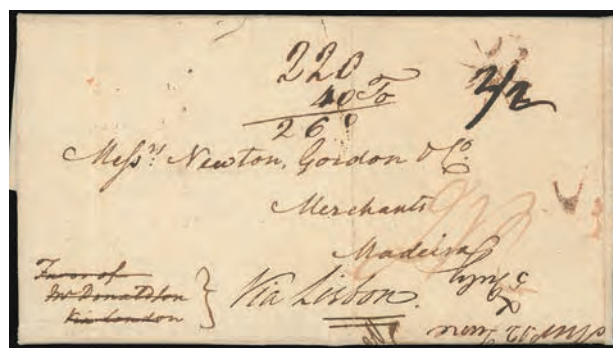 220
40 To
260
2/2
Messrs. Newton, Gordon & Co.
Merchants
Madeira
Favor of
Mr Donaldson
Via London
Via Lisbon.